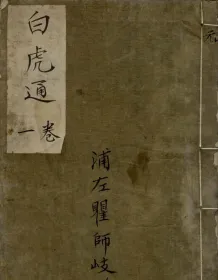 白虎通
卷一
浦左瞿師岐
元